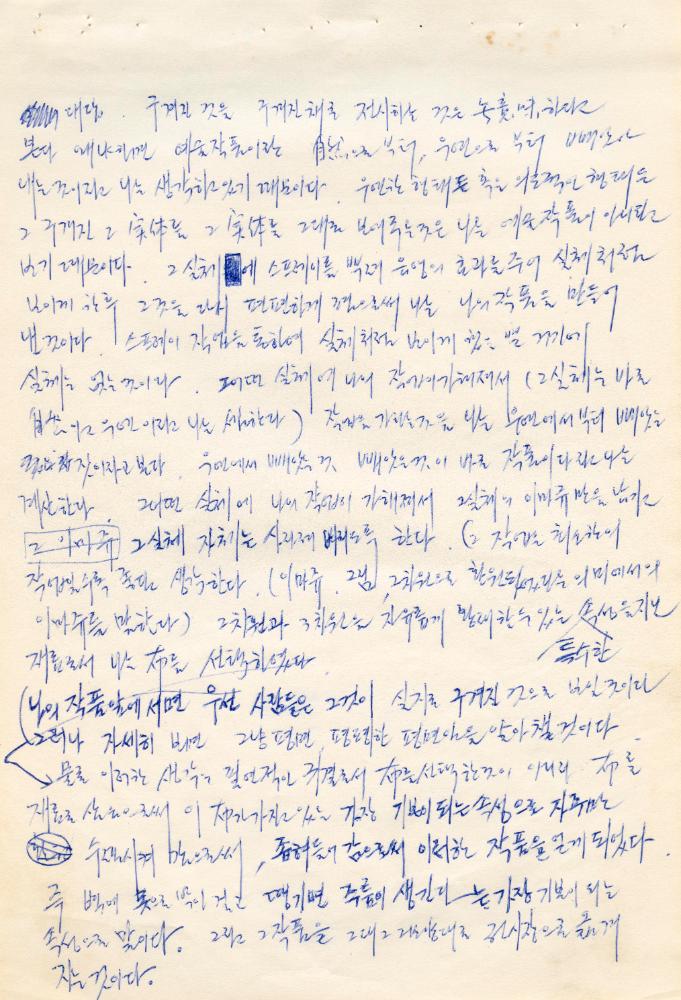 대다. 구겨진 것을 구겨진채로 전시하는 것은 하다고
본다 왜냐하면 예술작품이란 自然으로부터, 우연으로 부터 빼앗아
내는 것이라고 나는 생각하고 있기 때문이다. 우연한 형태 혹은 형태를
그 구겨진 그 実体를 그 実体를 그대로 보여주는것은 나는 예술작품이 아니라고
보기 때문이다. 그 실체에 스프레이를 뿌려 음영의 효과를 주어 실체처럼
보이게 한후 그것을 다시 편편하게 폄으로써 나는 나의 작품을 만들어
낸 것이다. 스프레이 작업을 통하여 실체처럼 보이게 했을 뿐 거기에
실체는 없는 것이다. 어떤 실체에 나의 작업이 가해져서 (그 실체는 바로
自然이고 우연이라고 나는 생각한다) 작업을 가하는것을 나는 우연에서부터 빼앗는
짓이라고 본다. 우연에서 빼앗는 것 빼앗은것이 바로 작품이다 라고 나는
계산한다. 그 어떤 실체에 나의 작업이 가해져서 그 실체의 이마쥬만을 남기고
그 이마쥬 그 실체 자체는 사라져 버리도록 한다. (그 작업은 최소한의
작업일수록 좋다고 생각한다. (이마쥬. 그림, 2차원으로 환원되었다는 의미에서의
이마쥬를 말한다) 2차원과 3차원을 자유롭게 왕래할수 있는 특수한 속성을 지닌
재료로서 나는 布를 선택하였다.
(나의 작품앞에 서면 우선 사람들은 그것이 실지로 구겨진 것으로 보일 것이다
그러나 자세히 보면 그냥 평면, 편편한 평면이라는 것을 알아챌 것이다.
물론 이러한 생각의 필연적인 귀결로서 布를 선택한것이 아니라 布를
재료로 삼음으로써 이 布가 가지고 있는 가장 기본이 되는 속성으로 자꾸만
감으로써, 이러한 작품을 얻게 되었다.
즉 벽에 못으로 박아 걸고 땡기면 주름이 생긴다는 가장 기본이 되는
속성으로 말이다. 그리고 그 작품을 그대로 전시장으로 옮겨
지는 것이다.